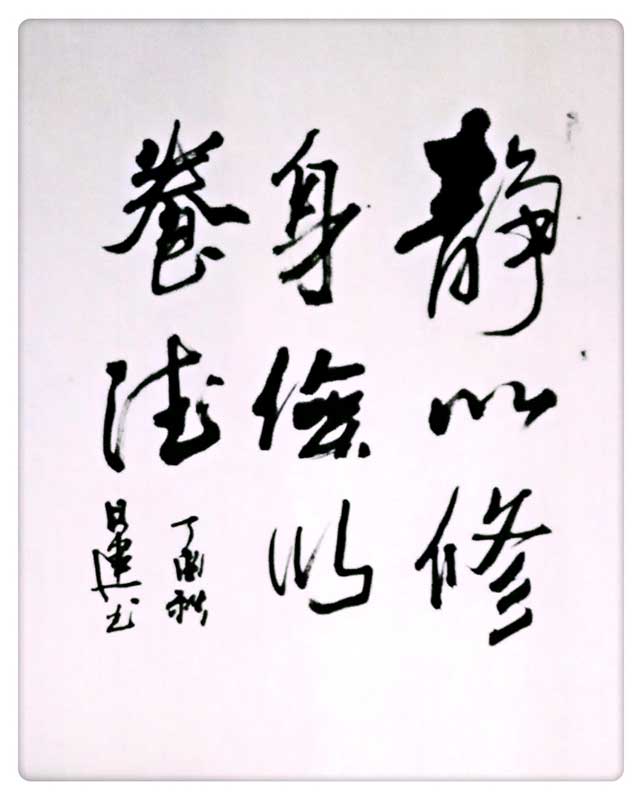 静以修
身俭以
养德
丁酉秋
日建书